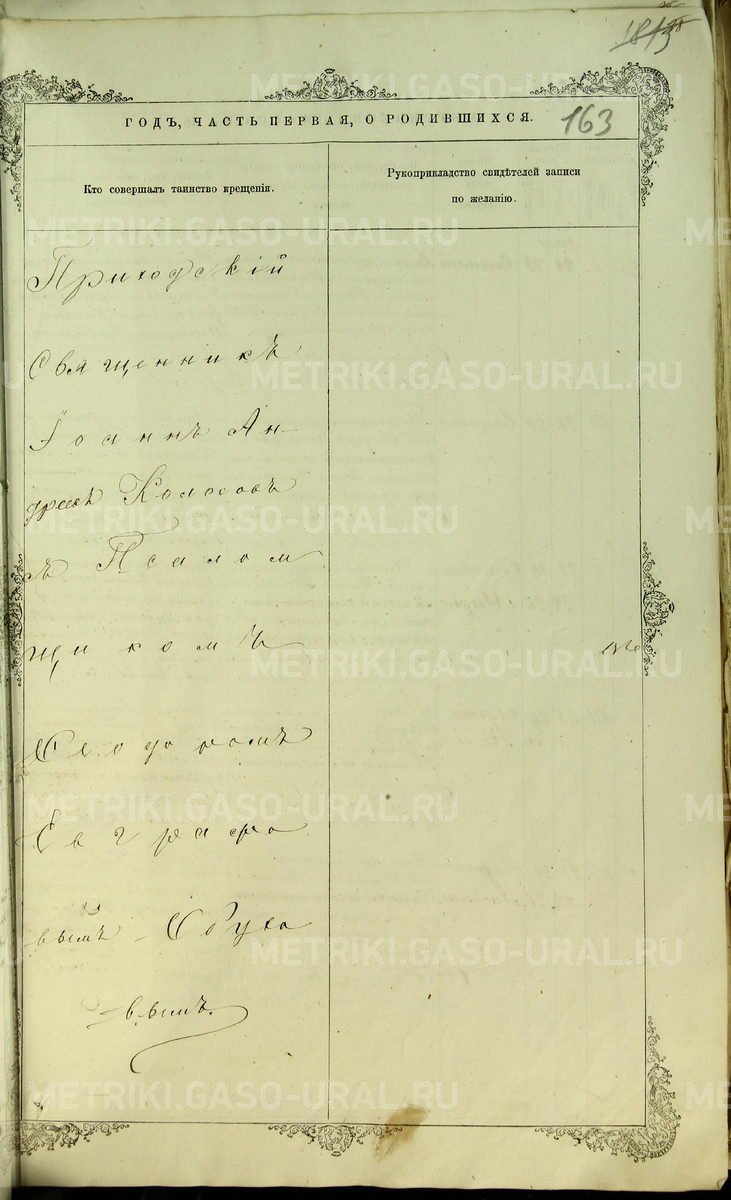 163
ГОДЪ, ЧАСТЬ ПЕРВАЯ, О РОДИВШИХСЯ.
Кто совершалъ таинство крещенія.
Рукоприкладство свидѣтелей записи
по желанію.
Приходскій
Священникъ
Іоаннъ Ан-
дреевъ Колосовъ
съ Псалом
щикомъ
Ѳеодоромъ
Евграфо
вымъ Обухо
вымъ.
METRIKI.GASO-URAL.RU